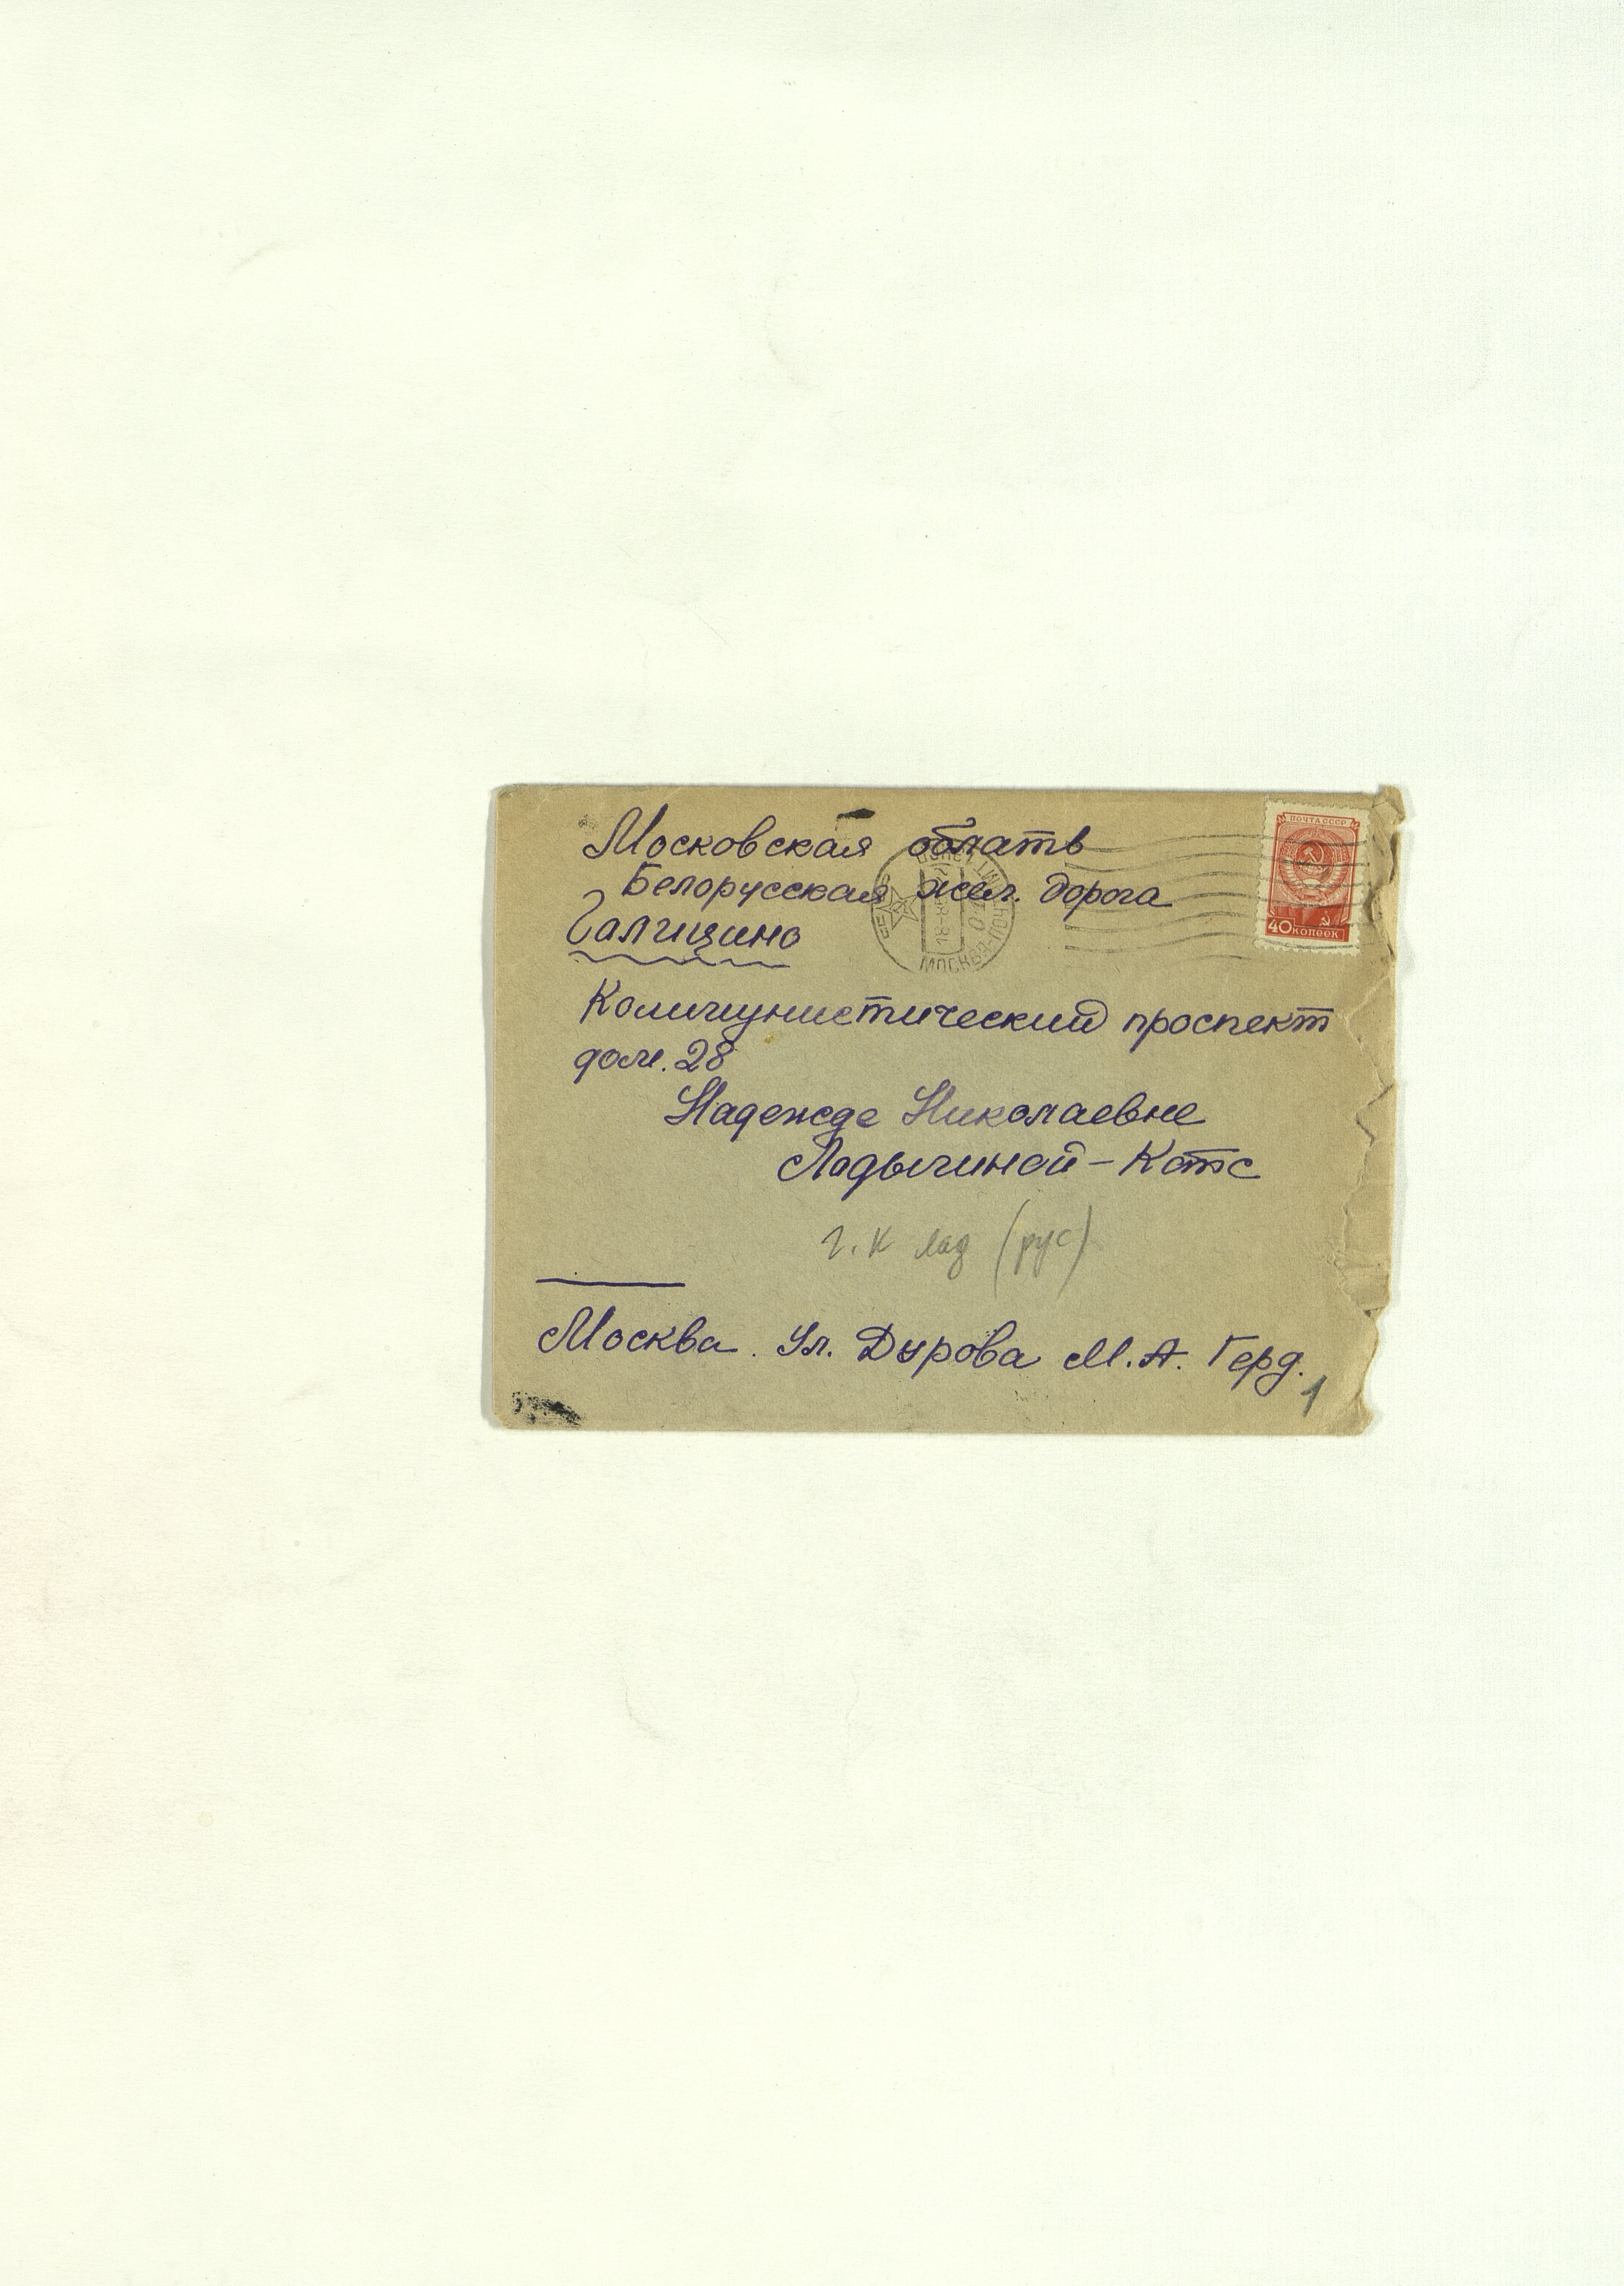 ПОЧТА СССР
40 КОПЕЕК
МОСКВА-ПОЧТАМТ
Московская облать
Белорусская жел. дорога
Галицино
Коммунистический проспект
дом. 28
Надежде Николаевне
Ладыгиной-Котс
г. К Лад (рус)
Москва. Ул. Дурова М.А. Герд.
1